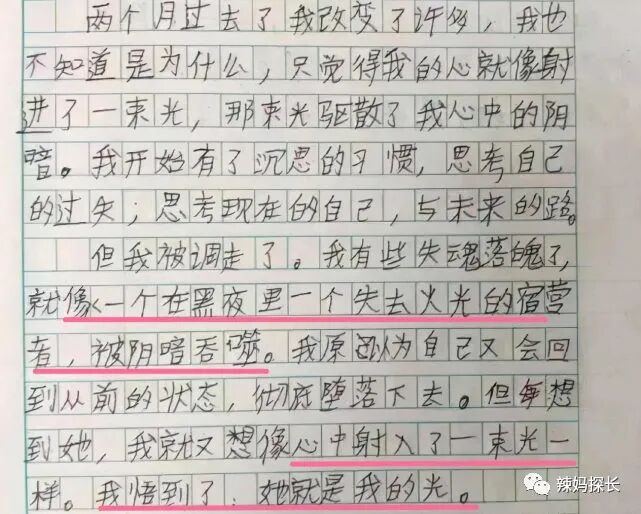 两个月过去了我改变了许多，我也
不知道是为什么，只觉得我的心就像射
进了一束光，那束光驱散了我心中的阴
暗。我开始有了沉思的习惯，思考自己
的过失；思考现在的自己，与未来的路。
但我被调走了。我有些失魂落魄了，
就像一个在黑夜里一个失去火光的宿营
者，被阴暗吞噬。我原因为自己又会回
到从前的状态，彻底堕落下去。但每想
到她，我就又想像心中射入了一束光一
样。我悟到了，她就是我的光。
辣妈探长